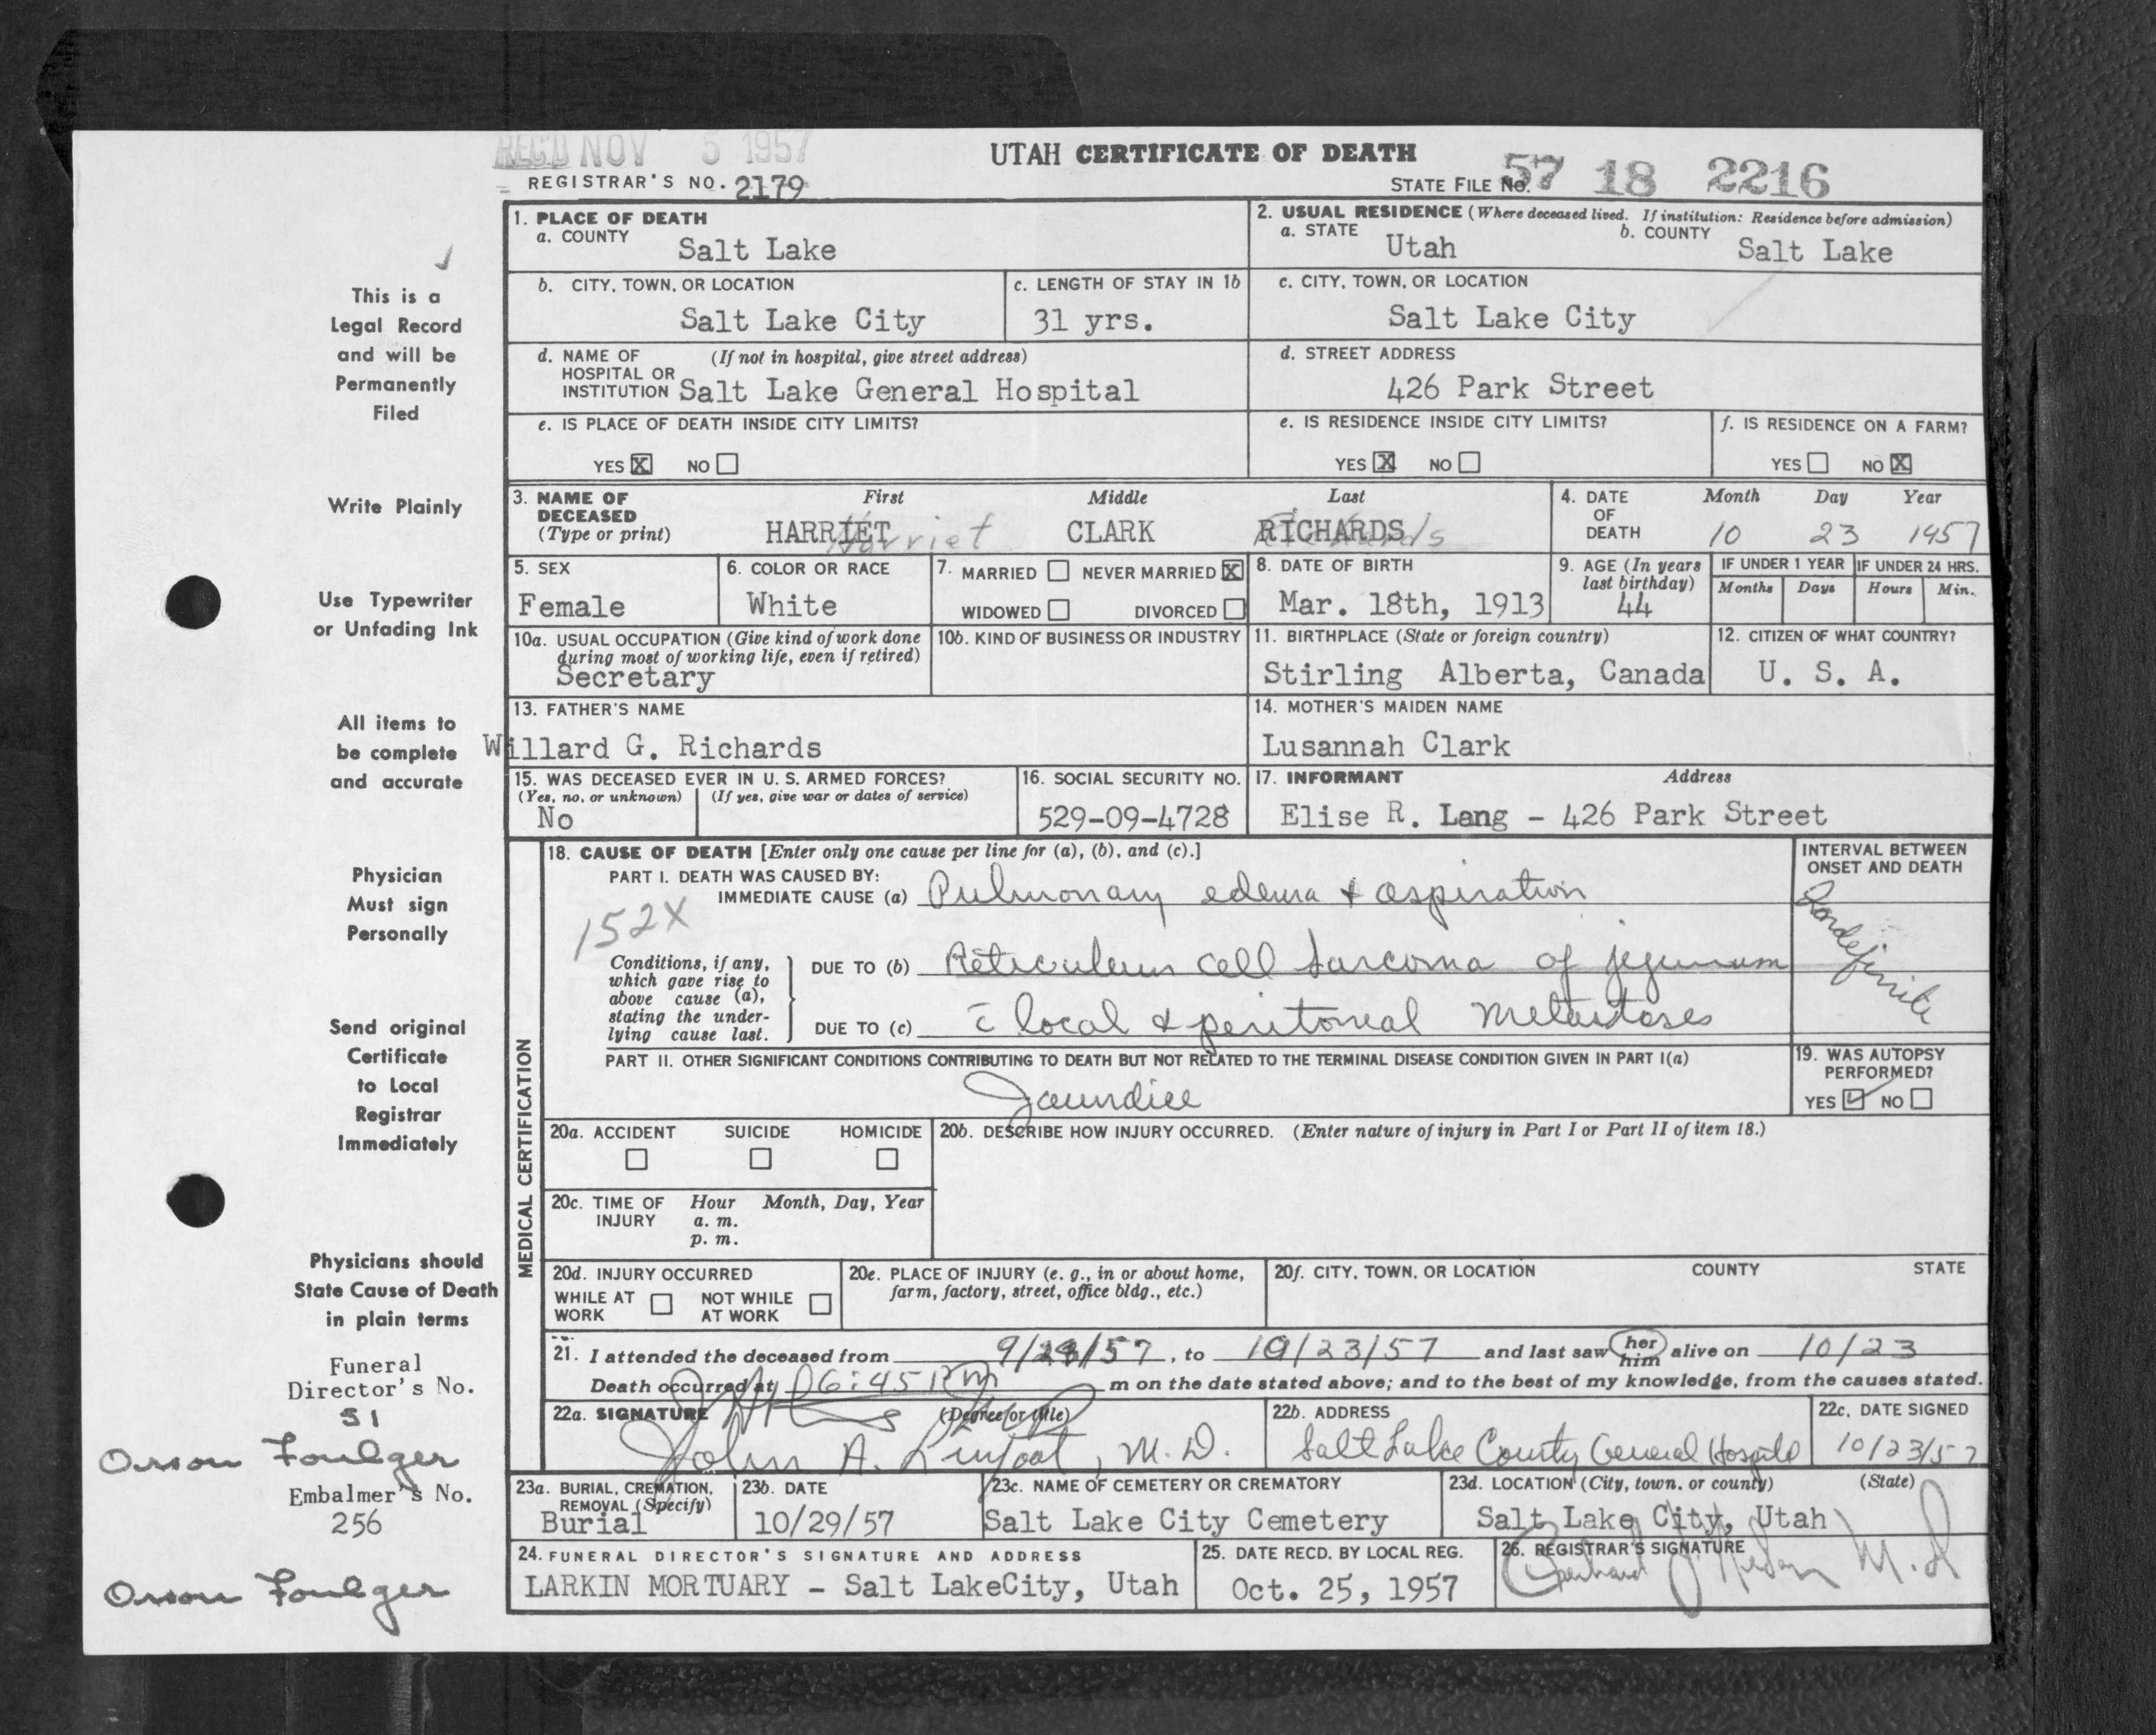 REC'D NOV 5 1957
UTAH CERTIFICATE OF DEATH
REGISTRAR'S NO. 2179
STATE FILE NO. 57 18 2216
This is a
Legal Record
and will be
Permanently
Filed
Write Plainly
Use Typewriter
or Unfading Ink
All items to
be complete
and accurate
Physician
Must sign
Personally
Send original
Certificate
to Local
Registrar
Immediately
Physicians should
State Cause of Death
in plain terms
Funeral
Director's No.
51
Orson Foulger
Embalmer's No.
256
Orson Foulger
1. PLACE OF DEATH
a. COUNTY Salt Lake
2. USUAL RESIDENCE (Where deceased lived. If institution: Residence before admission)
a. STATE Utah b. COUNTY Salt Lake
b. CITY, TOWN, OR LOCATION Salt Lake City
c. LENGTH OF STAY IN 1b 31 yrs.
c. CITY, TOWN, OR LOCATION Salt Lake City
d. NAME OF (If not in hospital, give street address)
HOSPITAL OR
INSTITUTION Salt Lake General Hospital
d. STREET ADDRESS
426 Park Street
e. IS PLACE OF DEATH INSIDE CITY LIMITS?
YES X NO
e. IS RESIDENCE INSIDE CITY LIMITS?
YES X NO
f. IS RESIDENCE ON A FARM?
YES NO X
3. NAME OF DECEASED (Type or print)
First Middle Last
HARRIET CLARK RICHARDS
Harriet Richards
4. DATE OF DEATH Month Day Year
10 23 1957
5. SEX
Female
6. COLOR OR RACE
White
7. MARRIED NEVER MARRIED X
WIDOWED DIVORCED
8. DATE OF BIRTH
Mar. 18th, 1913
9. AGE (In years last birthday)
44
IF UNDER 1 YEAR IF UNDER 24 HRS.
Months Days Hours Min.
10a. USUAL OCCUPATION (Give kind of work done during most of working life, even if retired)
Secretary
10b. KIND OF BUSINESS OR INDUSTRY
11. BIRTHPLACE (State or foreign country)
Stirling Alberta, Canada
12. CITIZEN OF WHAT COUNTRY?
U. S. A.
13. FATHER'S NAME
Willard G. Richards
14. MOTHER'S MAIDEN NAME
Lusannah Clark
15. WAS DECEASED EVER IN U. S. ARMED FORCES?
(Yes, no, or unknown) (If yes, give war or dates of service)
No
16. SOCIAL SECURITY NO.
529-09-4728
17. INFORMANT Address
Elise R. Lang - 426 Park Street
MEDICAL CERTIFICATION
18. CAUSE OF DEATH [Enter only one cause per line for (a), (b), and (c).]
PART I. DEATH WAS CAUSED BY:
IMMEDIATE CAUSE (a) Pulmonary edema & aspiration
152X
Conditions, if any,
which gave rise to
above cause (a),
stating the under-
lying cause last.
DUE TO (b) Reticulum cell sarcoma of jejunum
DUE TO (c) c̄ local & peritoneal metastases
INTERVAL BETWEEN
ONSET AND DEATH
PART II. OTHER SIGNIFICANT CONDITIONS CONTRIBUTING TO DEATH BUT NOT RELATED TO THE TERMINAL DISEASE CONDITION GIVEN IN PART I(a)
Jaundice
19. WAS AUTOPSY
PERFORMED?
YES ✓ NO
20a. ACCIDENT SUICIDE HOMICIDE
20b. DESCRIBE HOW INJURY OCCURRED. (Enter nature of injury in Part I or Part II of item 18.)
20c. TIME OF INJURY Hour Month, Day, Year
a. m.
p. m.
20d. INJURY OCCURRED
WHILE AT WORK NOT WHILE AT WORK
20e. PLACE OF INJURY (e. g., in or about home, farm, factory, street, office bldg., etc.)
20f. CITY, TOWN, OR LOCATION COUNTY STATE
21. I attended the deceased from 9/28/57, to 10/23/57 and last saw her him alive on 10/23
Death occurred at 6:45 Pm m on the date stated above; and to the best of my knowledge, from the causes stated.
22a. SIGNATURE (Degree or title)
John A. Linfoot, M. D.
22b. ADDRESS
Salt Lake County General Hospital
22c. DATE SIGNED
10/23/57
23a. BURIAL, CREMATION, REMOVAL (Specify)
Burial
23b. DATE
10/29/57
23c. NAME OF CEMETERY OR CREMATORY
Salt Lake City Cemetery
23d. LOCATION (City, town, or county) (State)
Salt Lake City, Utah
24. FUNERAL DIRECTOR'S SIGNATURE AND ADDRESS
LARKIN MORTUARY - Salt LakeCity, Utah
25. DATE RECD. BY LOCAL REG.
Oct. 25, 1957
26. REGISTRAR'S SIGNATURE
M. D